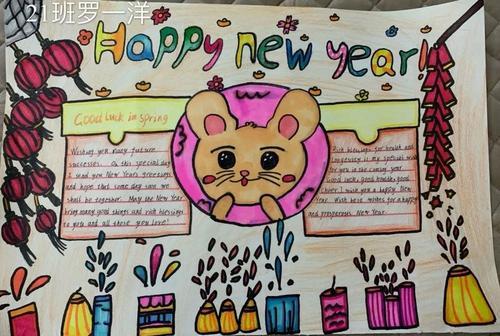 21班罗一洋
Happy new year!
Good luck in spring
Wishing you many future
successes. On this special day
I send you New Year's greetings
and hope that some day soon we
shall be together. May the New Year
bring many good things and rich blessings
to you and all those you love!
Rich blessings for health and
longevity is my special wish
for you in the coming year.
Good luck, good health, good
cheer. I wish you a happy New
Year. With best wishes for a happy
and prosperous New Year.